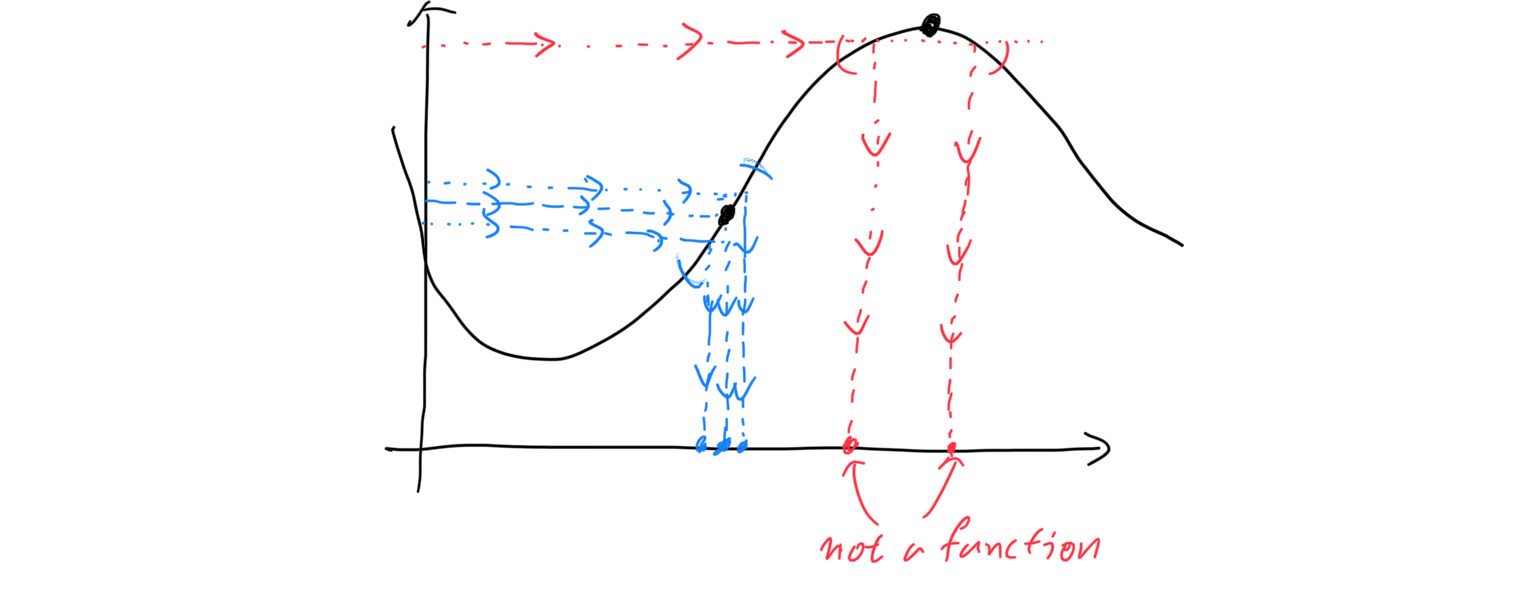 not a function